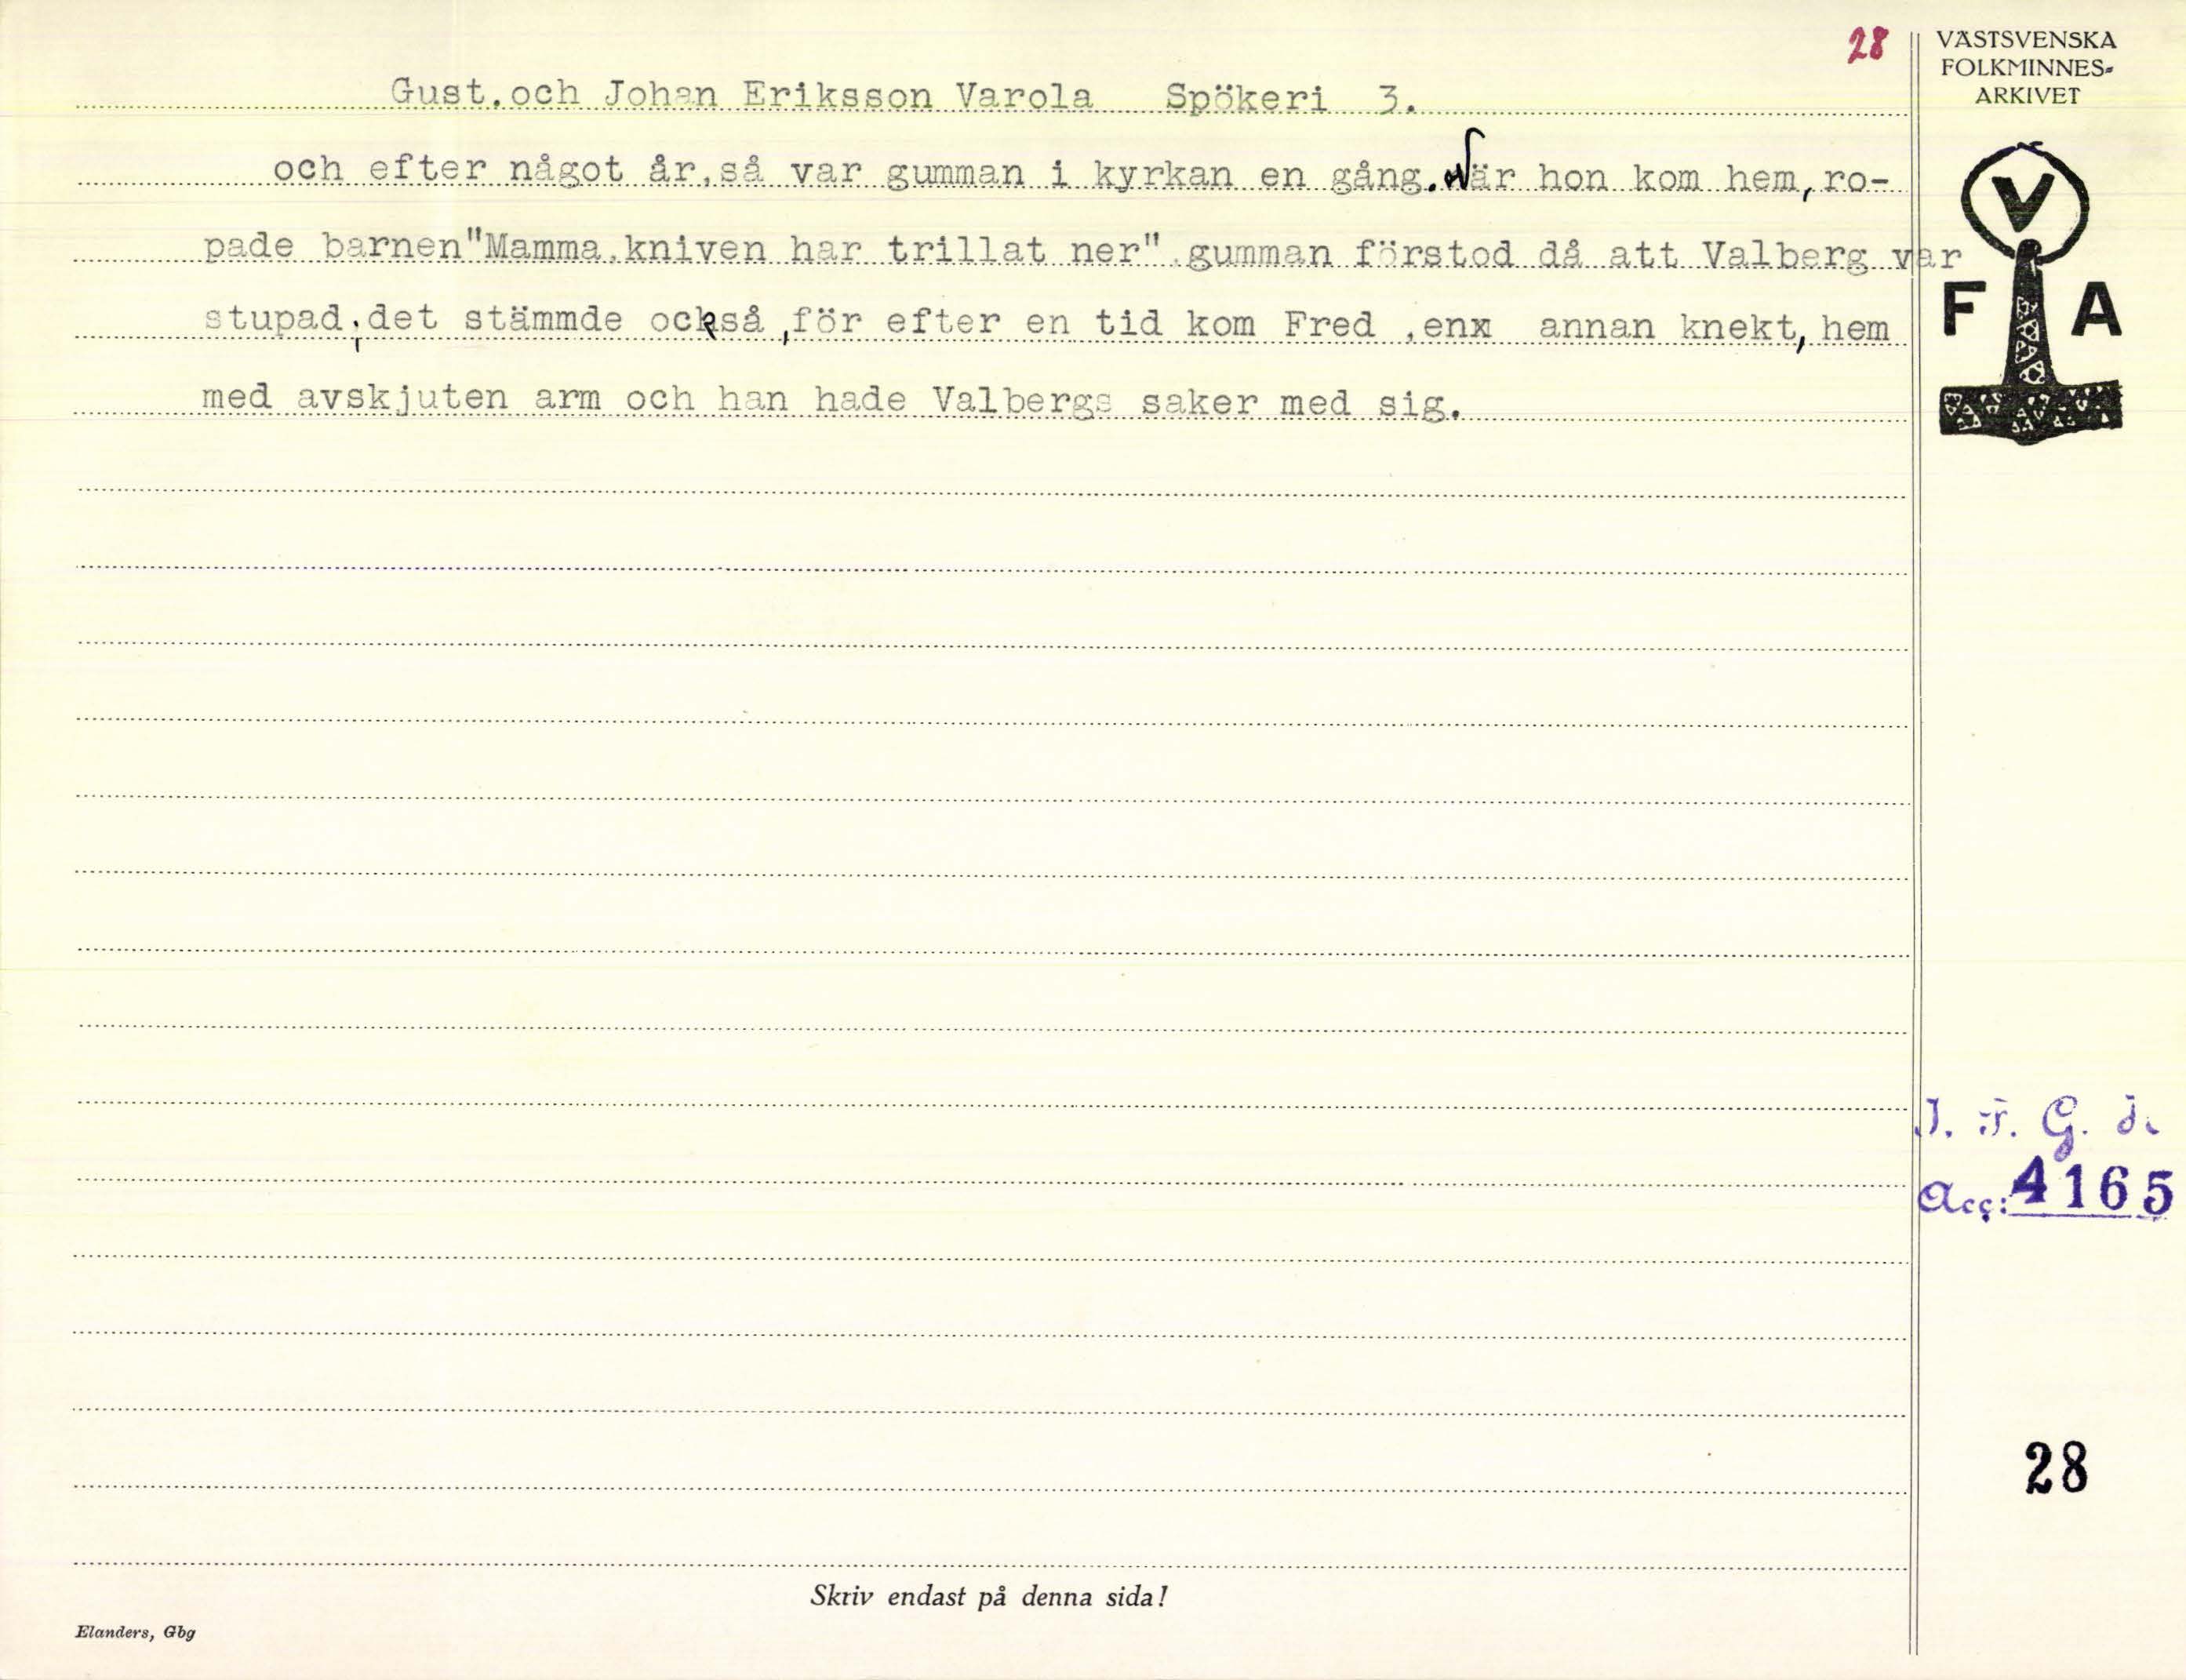 28
VÄSTSVENSKA
FOLKMINNES-
ARKIVET
Gust.och Johan Eriksson Varola Spökeri 3.
och efter något år,så var gumman i kyrkan en gång.När hon kom hem, ro-
pade barnen"Mamma,kniven har trillat ner".gumman förstod då att Valberg var
stupad;det stämmde också,för efter en tid kom Fred ,enx annan knekt, hem
med avskjuten arm och han hade Valbergs saker med sig.
V
F A
I. F. G. s.
Acc: 4165
28
Skriv endast på denna sida!
Elanders, Gbg